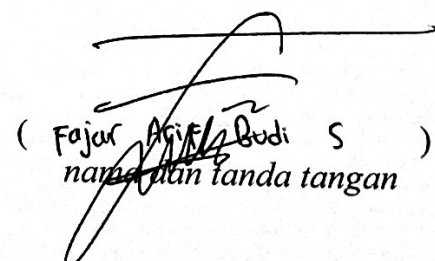 ( Fajar Budi S )
nama dan tanda tangan